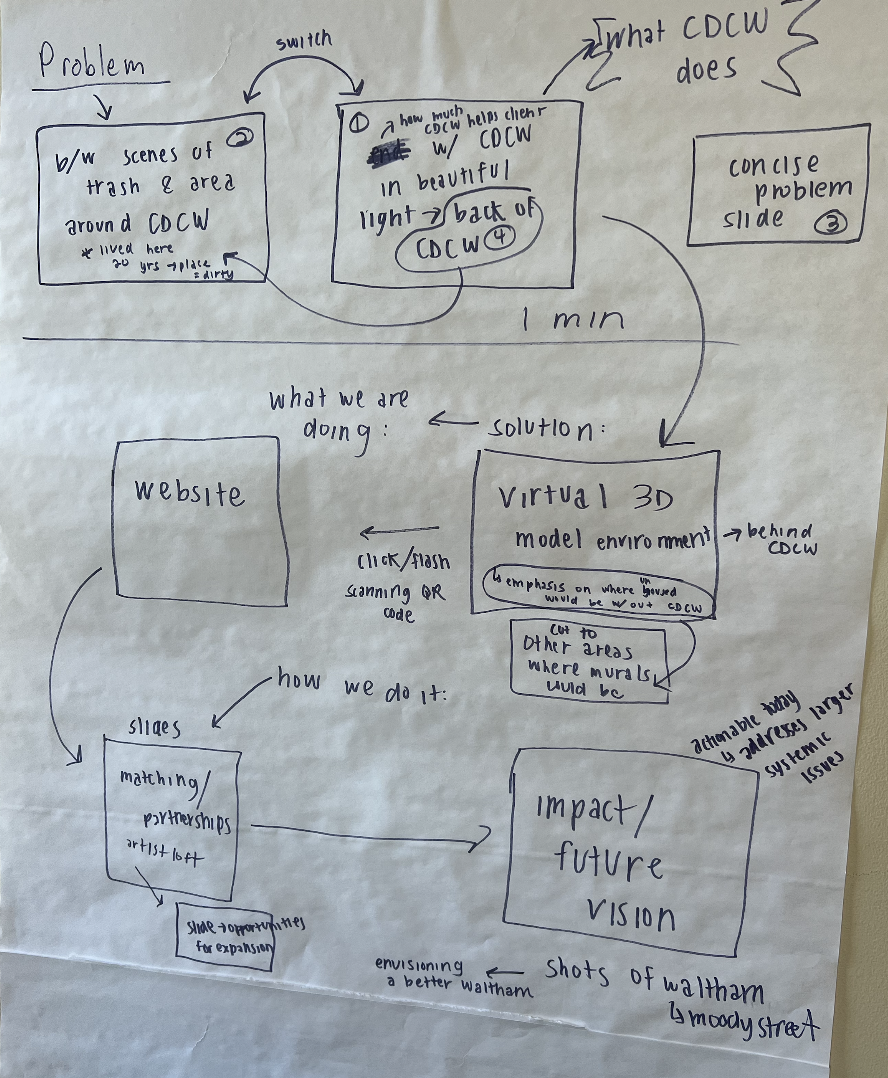 Problem
switch
What CDCW
does
b/w scenes of ②
trash & area
around CDCW
* lived here
20 yrs → place
= dirty
① ↗ how much
CDCW helps client
w/ CDCW
in beautiful
light → back of
CDCW ④
concise
problem
slide ③
1 min
what we are
doing:
← solution:
website
click/flash
scanning QR
code
Virtual 3D
model environment
→ behind
CDCW
↳ emphasis on where unhoused
would be w/out CDCW
cut to
other areas
where murals
would be
how we do it:
slides
matching/
partnerships
artist loft
slide → opportunities
for expansion
actionable today
↳ addresses larger
systemic
issues
impact/
future
vision
envisioning
a better waltham
← shots of waltham
↳ moody street